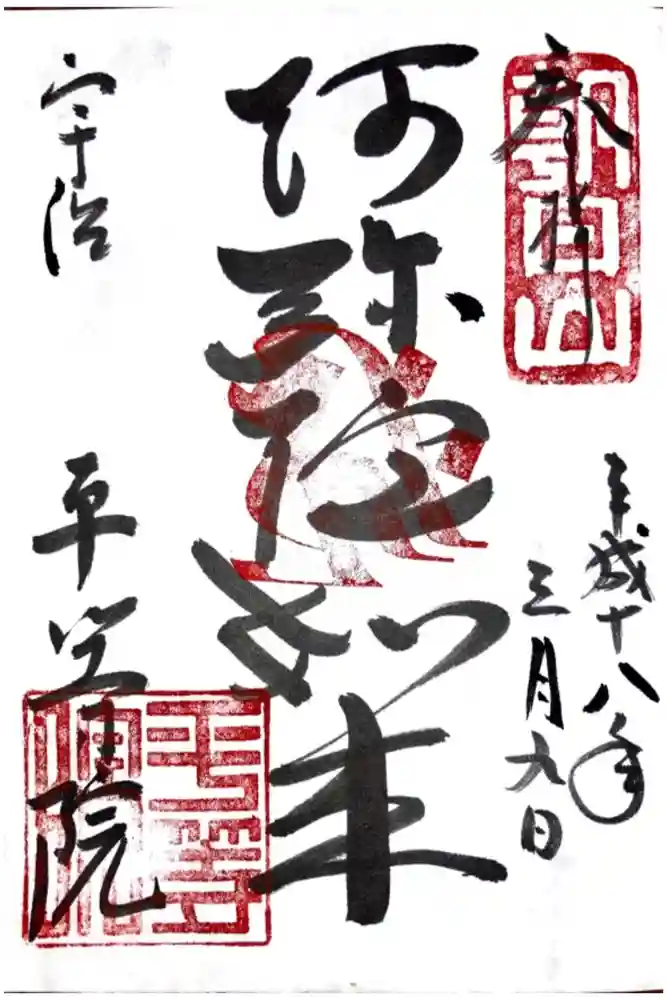 奉拝
朝日山
平成十八年
三月九日
阿弥陀如来
宇治
平等院